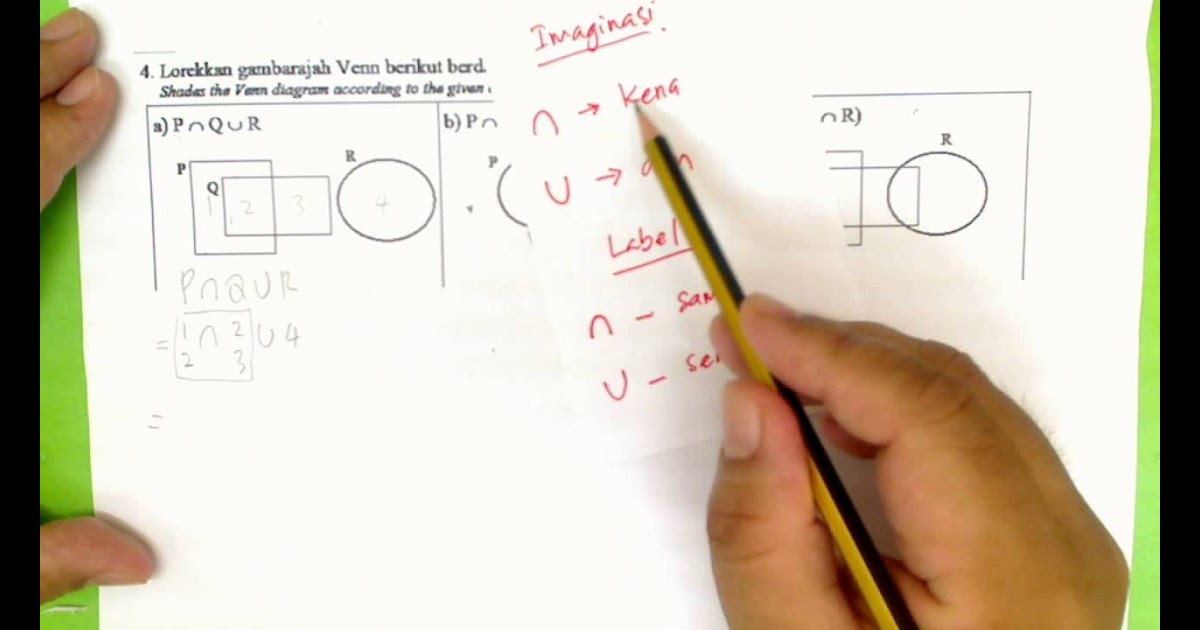 4. Lorekkan gambarajah Venn berikut berd
Shades the Venn diagram according to the given
a) P∩Q∪R
b) P∩
∩R)
P
Q
R
1
2
3
4
P
R
P∩Q∪R
= 1 ∩ 2 ∪ 4
2 3
=
Imaginasi
∩ → Kena
∪ →
Label
∩ – sam
∪ – se